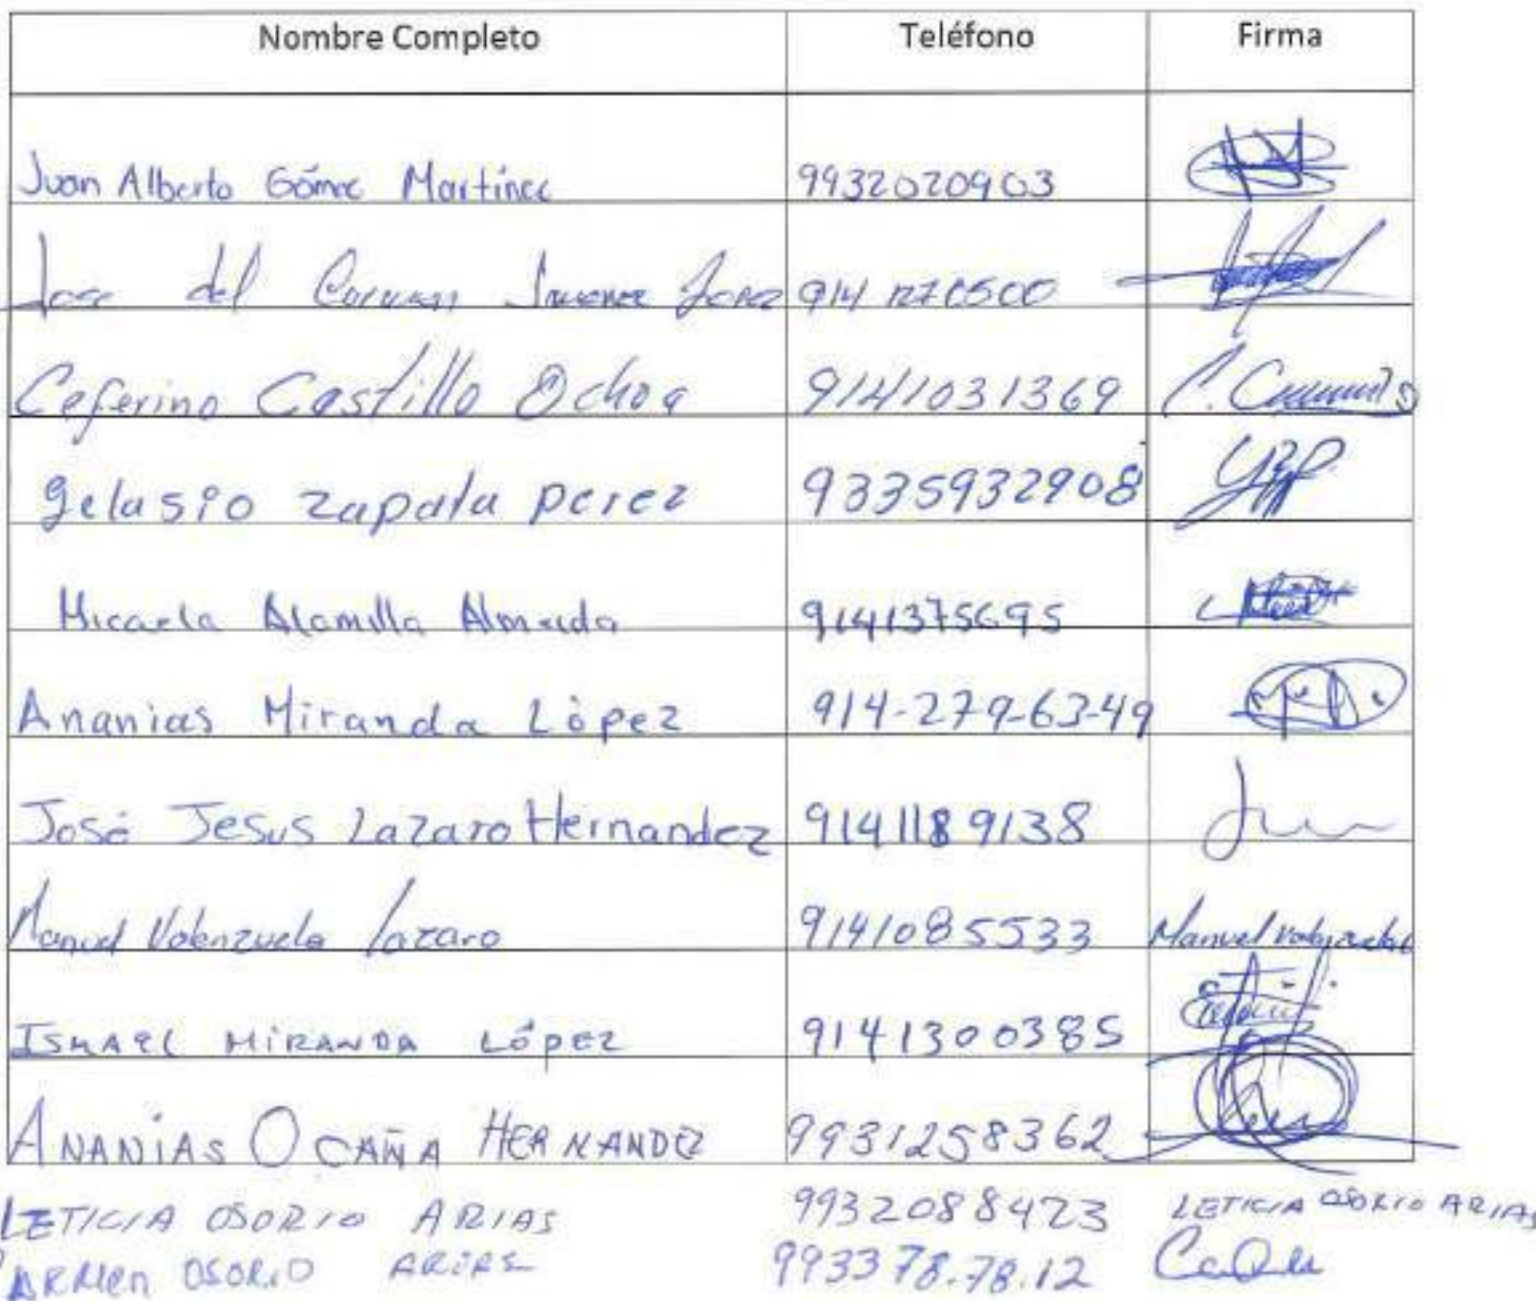 Nombre Completo Teléfono Firma
Juan Alberto Gómez Martínez 9932020903
Jose del Carmen Jimenez 914
Ceferino Castillo Ochoa 9141031369
gelasio zapata perez 9335932908
Micaela Alamilla Almeida 9141375695
Ananias Miranda López 914-279-63-49
José Jesus Lazaro Hernandez 9141189138
Manuel Valenzuela Lazaro 9141085533 Manuel Valenzuela
ISMAEL MIRANDA LÓPEZ 9141300385
ANANÍAS OCAÑA HERNANDEZ 9931258362
LETICIA OSORIO ARIAS 9932088423 LETICIA OSORIO ARIAS
CARMEN OSORIO ARIAS 993378.78.12